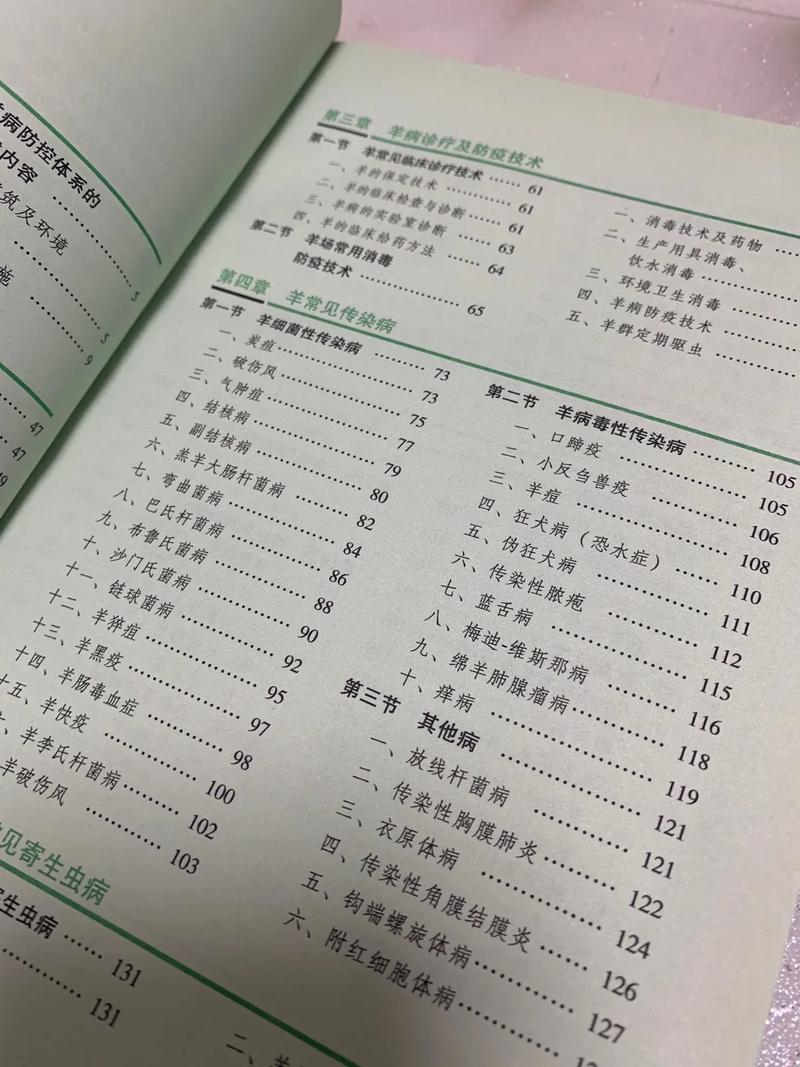 病防控体系的
内容
筑及环境
5
施
5
9
47
47
49
第三章 羊病诊疗及防疫技术
第一节 羊常见临床诊疗技术 …… 61
一、羊的保定技术 ………… 61
二、羊的临床检查与诊断 …… 61
三、羊病的实验室诊断 …… 63
四、羊的临床给药方法 …… 64
第二节 羊场常用消毒
防疫技术 ………… 65
一、消毒技术及药物
二、生产用具消毒、
饮水消毒
三、环境卫生消毒
四、羊病防疫技术
五、羊群定期驱虫
第四章 羊常见传染病
第一节 羊细菌性传染病 ……… 73
一、炭疽 ………… 73
二、破伤风 ………… 75
三、气肿疽 ………… 77
四、结核病 ………… 79
五、副结核病 ………… 80
六、羔羊大肠杆菌病 ……… 82
七、弯曲菌病 ………… 84
八、巴氏杆菌病 ………… 86
九、布鲁氏菌病 ………… 88
十、沙门氏菌病 ………… 90
十一、链球菌病 ………… 92
十二、羊猝疽 ………… 95
十三、羊黑疫 ………… 97
十四、羊肠毒血症 ……… 98
十五、羊快疫 ………… 100
六、羊李氏杆菌病 ……… 102
羊破伤风 ………… 103
第二节 羊病毒性传染病 ……… 105
一、口蹄疫 ………… 105
二、小反刍兽疫 ………… 106
三、羊痘 ………… 108
四、狂犬病（恐水症）…… 110
五、伪狂犬病 ………… 111
六、传染性脓疱 ………… 112
七、蓝舌病 ………… 115
八、梅迪-维斯那病 ……… 116
九、绵羊肺腺瘤病 ……… 118
十、痒病 ………… 119
第三节 其他病 ………… 121
一、放线杆菌病 ………… 121
二、传染性胸膜肺炎 ……… 122
三、衣原体病 ………… 124
四、传染性角膜结膜炎 …… 126
五、钩端螺旋体病 ……… 127
六、附红细胞体病 ………
见寄生虫病
生虫病 …… 131
131
二、羊